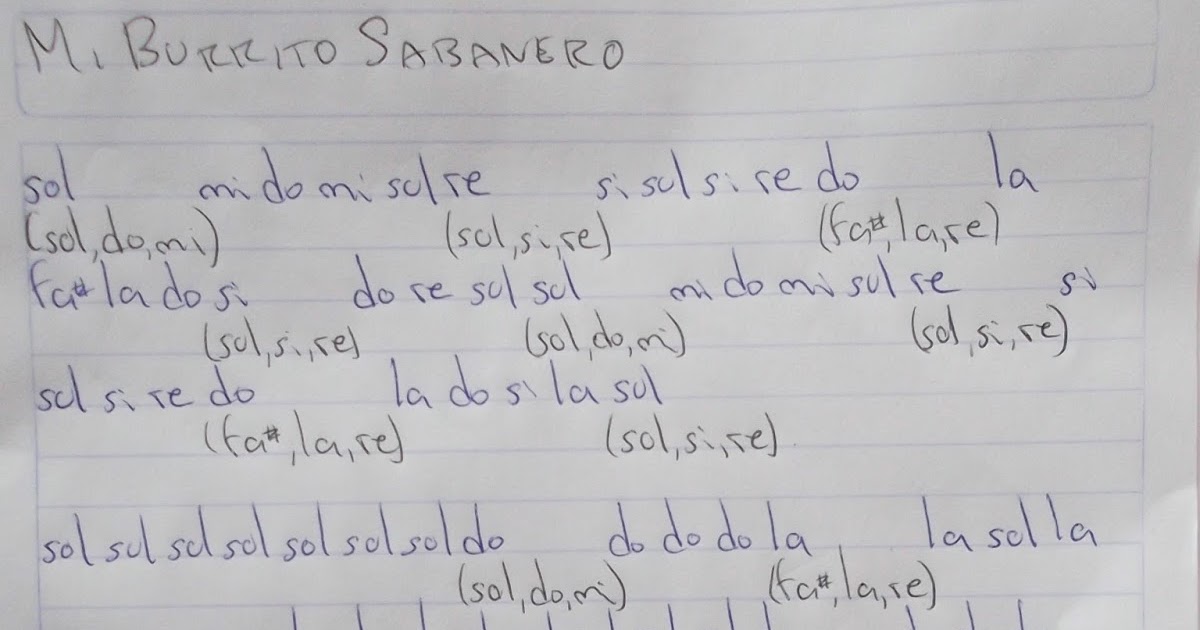 Mi BURRITO SABANERO
sol mi do mi sol re si sol si re do la
(sol, do, mi) (sol, si, re) (fa#, la, re)
fa# la do si do re sol sol mi do mi sol re si
(sol, si, re) (sol, do, mi) (sol, si, re)
sol si re do la do si la sol
(fa#, la, re) (sol, si, re)
sol sol sol sol sol sol sol do do do do la la sol la
(sol, do, mi) (fa#, la, re)